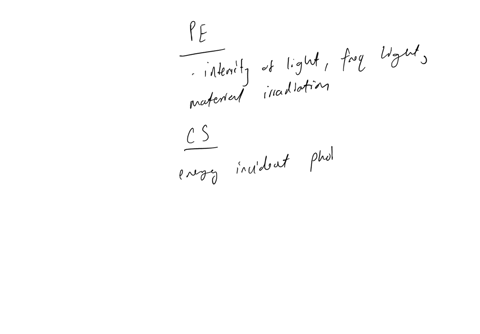 PE
. intensity of light, freq light,
material irradiation
CS
energy incident phot